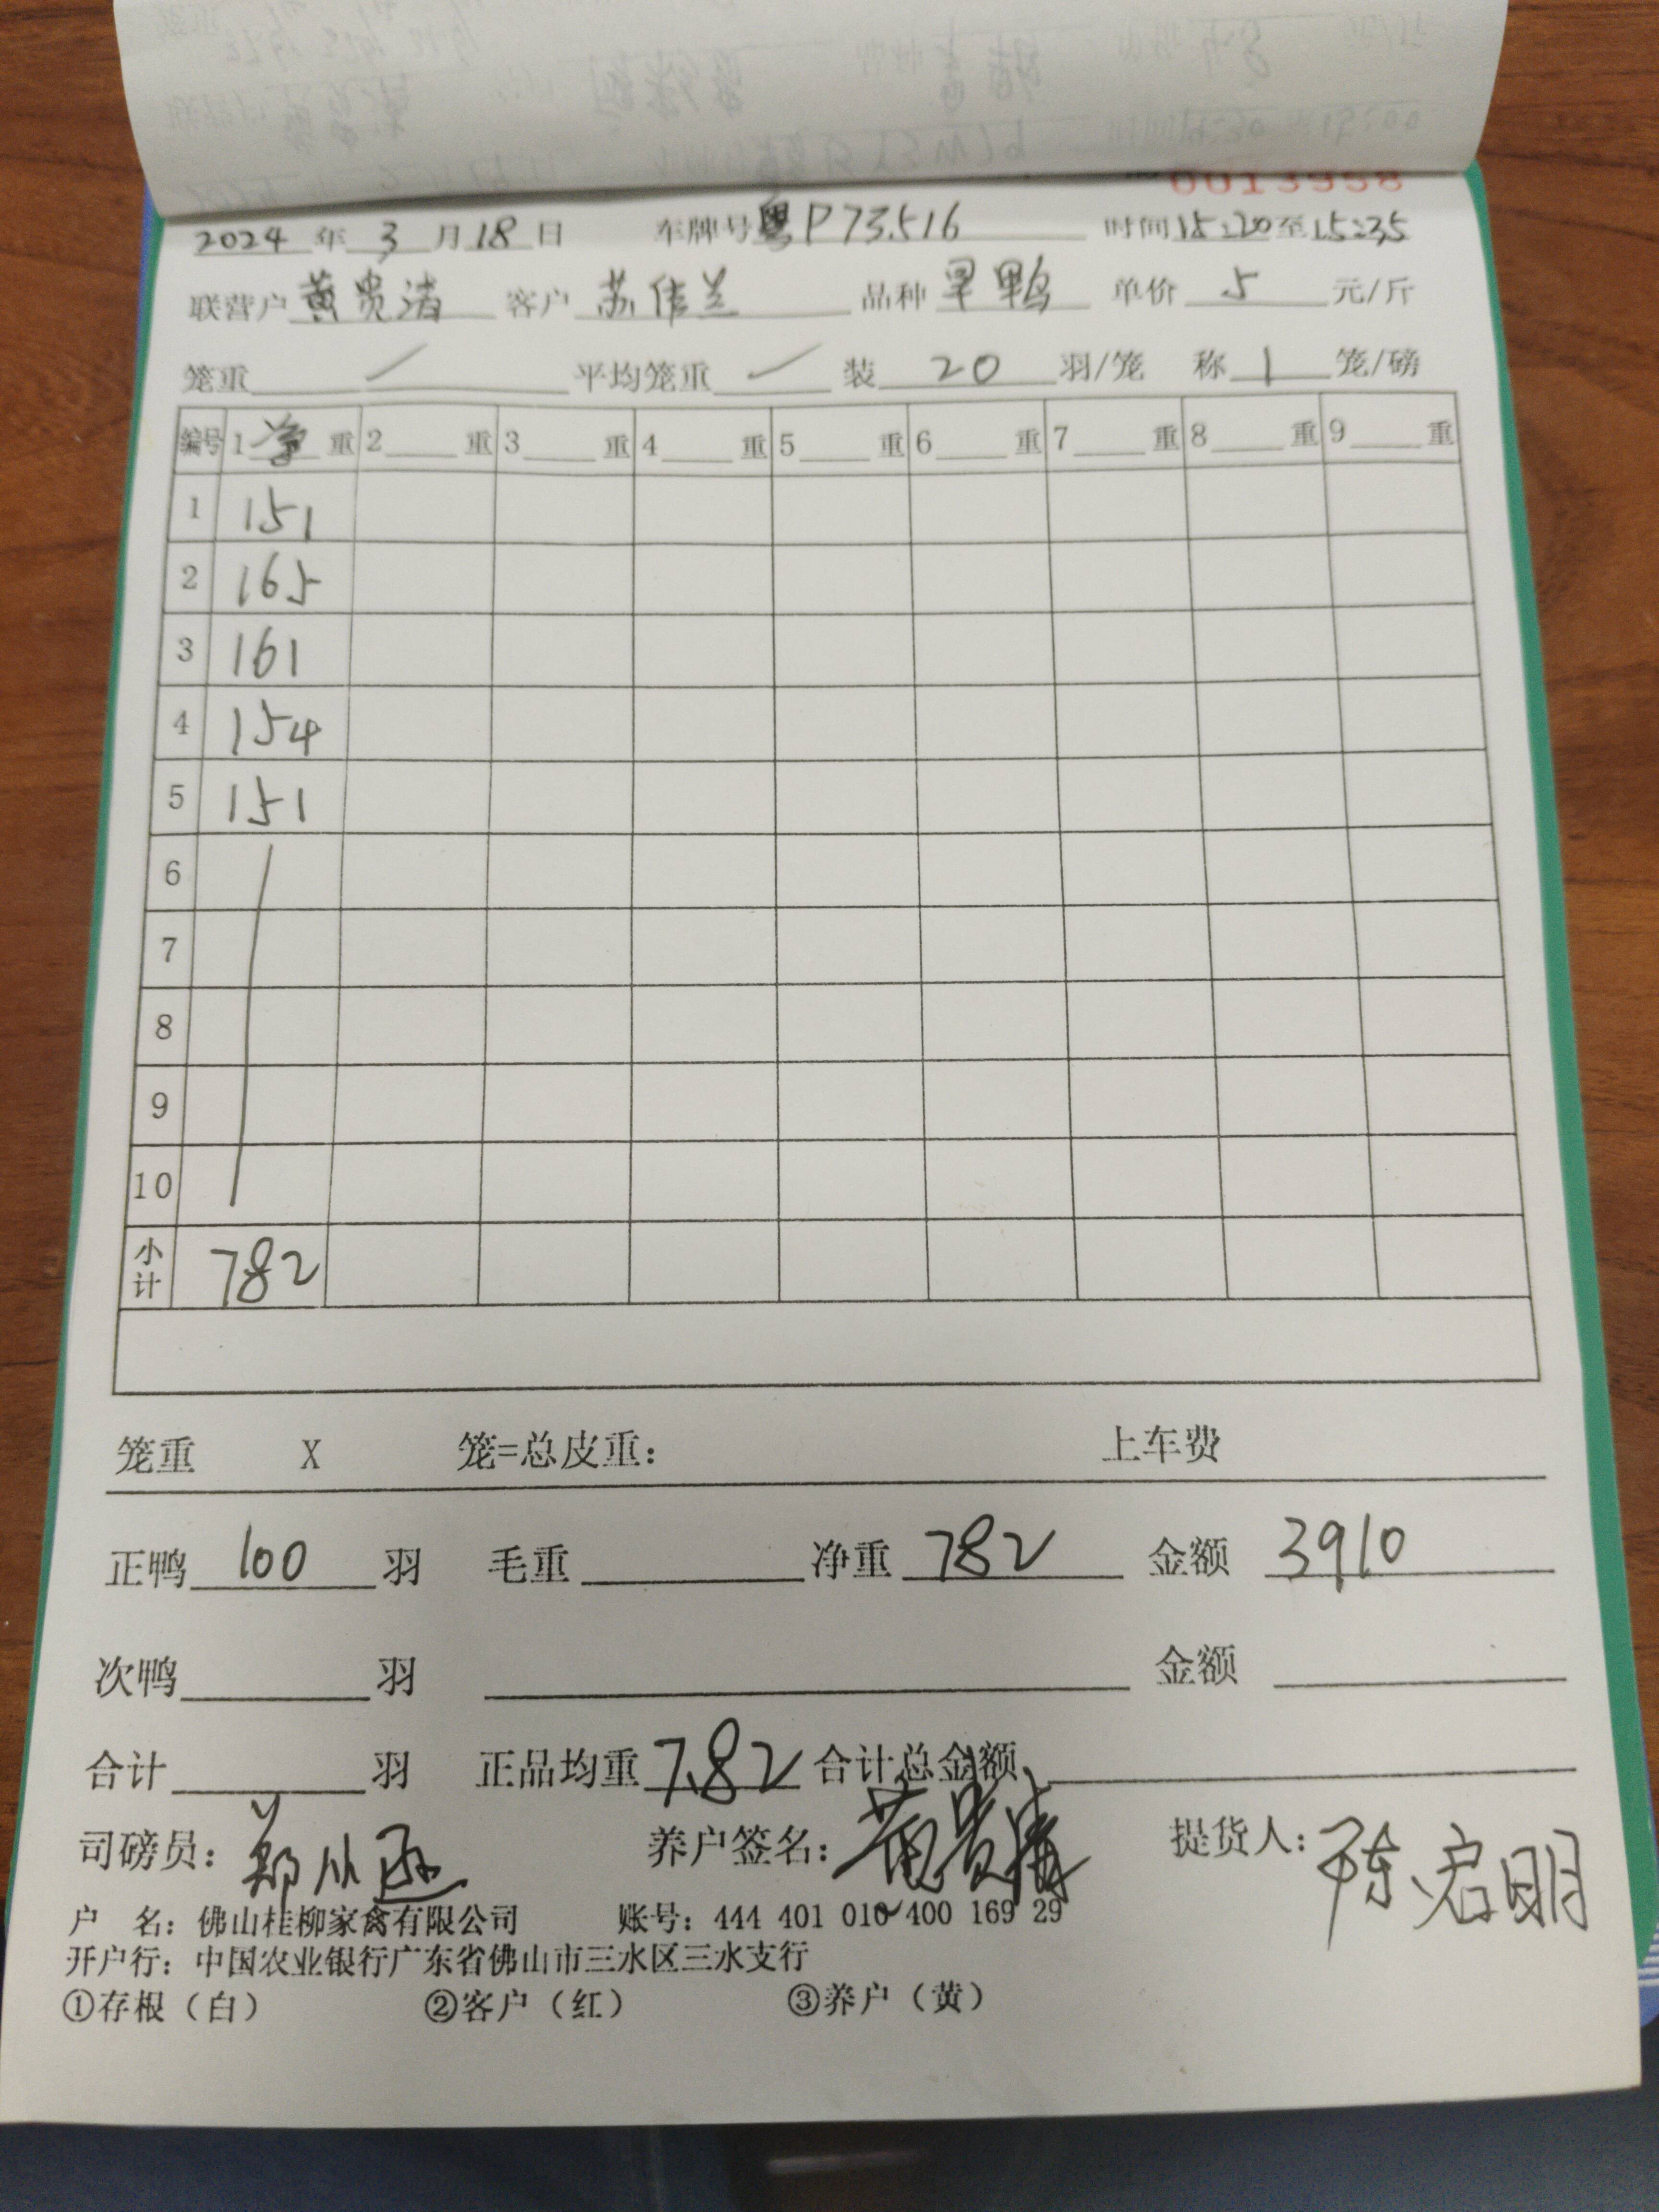 0013958
2024 年 3 月 18 日 车牌号 粤P73516 时间 15:20 至 15:35
联营户 黄贵清 客户 苏佳兰 品种 旱鸭 单价 5 元/斤
笼重 / 平均笼重 / 装 20 羽/笼 称 1 笼/磅
编号 1 净 重 2 重 3 重 4 重 5 重 6 重 7 重 8 重 9 重
1 151
2 165
3 161
4 154
5 151
6
7
8
9
10
小计 782
笼重 X 笼=总皮重: 上车费
正鸭 100 羽 毛重 净重 782 金额 3910
次鸭 羽 金额
合计 羽 正品均重 7.82 合计总金额
司磅员: 郑 养户签名: 黄贵清 提货人: 陈君明
户 名: 佛山桂柳家禽有限公司 账号: 444 401 010 400 169 29
开户行: 中国农业银行广东省佛山市三水区三水支行
①存根（白） ②客户（红） ③养户（黄）